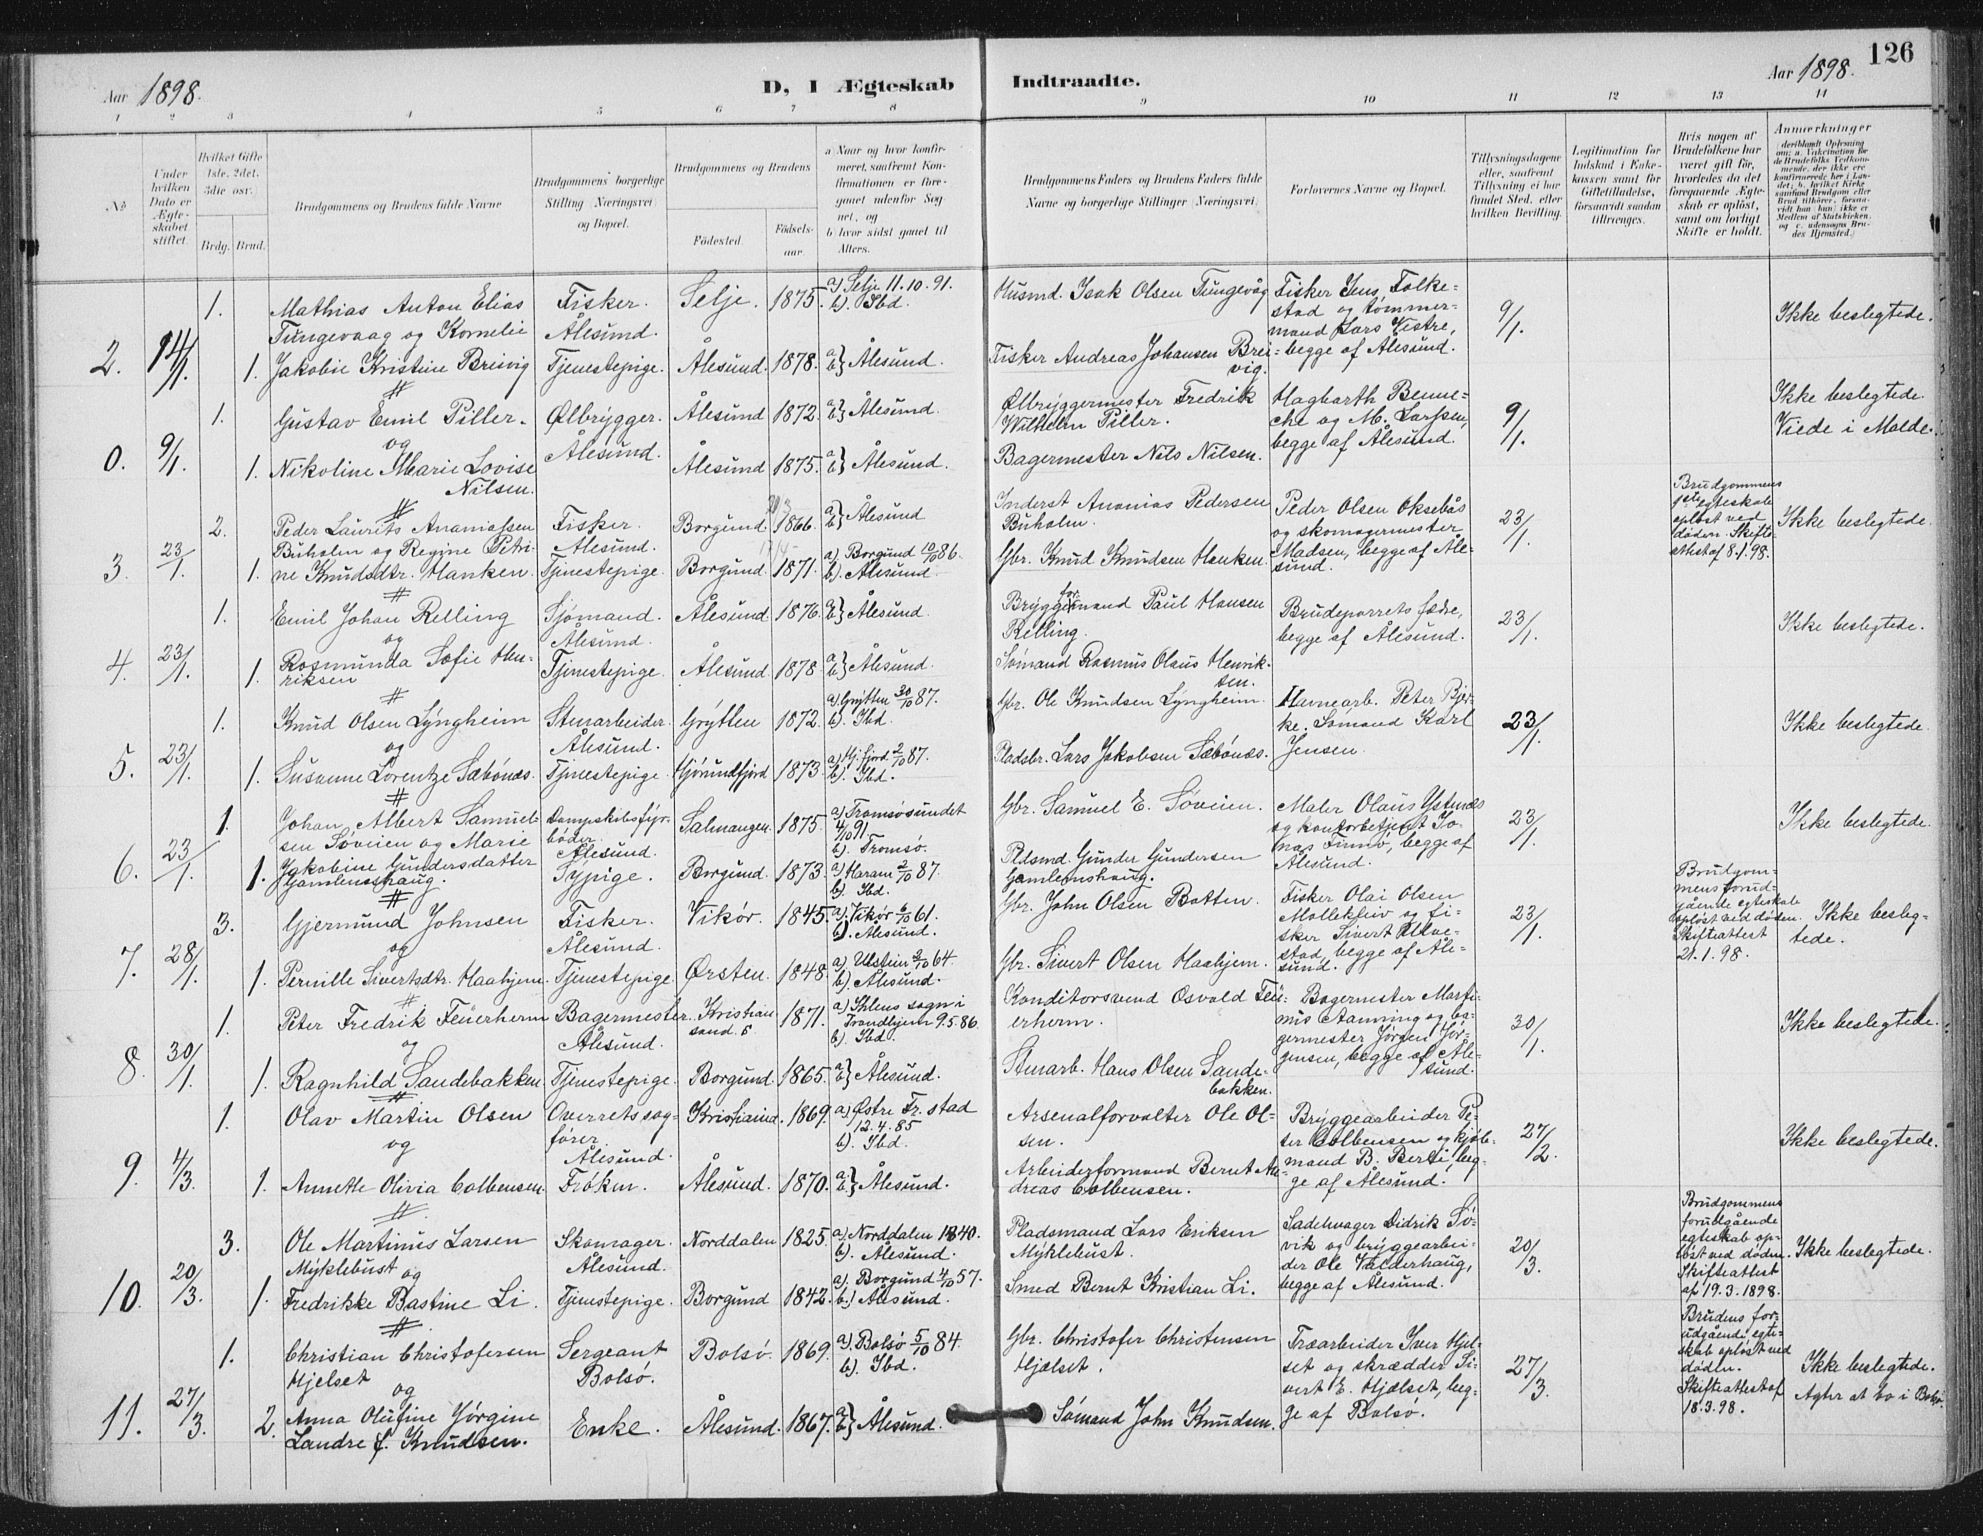 126
Aar 1898.
D, I Ægteskab Indtraadte.
Aar 1898.
1 2 3 4 5 6 7 8 9 10 11 12 13 14
No
Under hvilken Dato er Ægteskabet stiftet.
Hvilket Gifte 1ste, 2det, 3dte osv.
Brdg. Brud.
Brudgommens og Brudens fulde Navne
Brudgommens borgerlige Stilling (Næringsvei) og Bopæl.
Brudgommens og Brudens
Fødested.
Fødselsaar
a Naar og hvor konfirmeret, saafremt Konfirmationen er foregaaet udenfor Sognet, og
b hvor sidst gaaet til Alters.
Brudgommens Faders og Brudens Faders fulde Navne og borgerlige Stillinger (Næringsvei).
Forlovernes Navne og Bopæl.
Tillysningsdagene eller, saafremt Tillysning ei har fundet Sted, efter hvilken Bevilling.
Legitimation for Indskud i Enkekassen samt for Giftetilladelse, forsaavidt saadan tiltrænges.
Hvis nogen af Brudefolkene har været gift før, hvorledes da det foregaaende Ægteskab er opløst, samt om lovligt Skifte er holdt.
Anmærkninger
deriblandt Oplysning om: a. Vakcination for de Brudefolks Vedkommende, der ikke ere konfirmerede her i Landet; b. hvilket Kirkesamfund Brudgom eller Brud tilhører, forsaavidt han (hun) ikke er Medlem af Statskirken, og c. udensogns Brudes Hjemsted.
2. 14/1. 1. Mathias Anton Elias Tungevaag og Kornelie
Fisker. Ålesund. Selje. 1875. a) Selje 11.10.91. b). Ibd.
Husmd. Isak Olsen Tungevåg
Fisker Jens Folkestad og tømmermand Lars Vestre, begge af Ålesund.
9/1. Ikke beslegtede.
1. Jakobie Kristine Breivig Tjenestepige. Ålesund. 1878. a b} Ålesund.
Fisker Andreas Johansen Breivig.
0. 9/1. 1. Gustav Emil Piller. og
Ølbrygger. Ålesund. Ålesund 1872. a b} Ålesund.
Ølbryggermester Fredrik Wilhelm Piller.
Hagbarth Benneche og M. Larssen, begge af Ålesund.
9/1. Ikke beslegtede. Viede i Molde.
1. Nikoline Marie Lovise Nilsen. Ålesund 1875. a b} Ålesund.
Bagermester Nils Nilsen.
3. 23/1. 2. Peder Laurits Ananiassen Buholm og Regine Petrine Knudsdtr. Hanken
Fisker. Ålesund. Borgund 1866. a b} Ålesund
Inderst Ananias Pedersen Buholm.
Peder Olsen Oksebås og skomagermester Madsen, begge af Ålesund.
23/1. Brudgommens 1ste egteskab opløst ved døden. Skifteattest af 8.1.98. Ikke beslegtede.
1. Tjenestepige. Borgund. 1871. a) Borgund 10/10 86. b). Ålesund.
Gbr. Knud Knudsen Hanken.
4. 23/1. 1. Emil Johan Relling og
Sjømand. Ålesund. Ålesund 1876. a b} Ålesund
Bryggeformand Paul Hansen Relling.
Brudeparrets fædre, begge af Ålesund.
23/1. Ikke beslegtede.
1. Rosmunda Sofie Henriksen Tjenestepige. Ålesund. 1878 a b} Ålesund.
Sømand Rasmus Olaus Henriksen.
5. 23/1. 1. Knud Olsen Lyngheim og
Stenarbeider. Ålesund. Grytten 1872. a). Grytten 30/10 87. b). Ibd.
Gbr. Ole Knudsen Lyngheim.
Havnearb. Peter Bjerke. Sømand Karl Jensen.
23/1. Ikke beslegtede.
1. Susanne Lorentze Sæbønæs. Tjenestepige. Hjørundfjord 1873. a) Hj.fjord 2/10 87. b). Ibd.
Pladsbr. Lars Jakobsen Sæbønæs.
6. 23/1. 1. Johan Albert Samuelsen Søveien og Marie
Dampskibsfyrbøder. Ålesund. Salangen. 1875. a) Tromsøsundet 4/10 91. b). Tromsø.
Gbr. Samuel E. Søveien.
Maler Olaus Ystenæs og kontorbetjent Jonas Finnø, begge af Ålesund.
23/1. Ikke beslegtede.
1. Jakobine Gundersdatter Gamlemshaug. Sypige. Borgund. 1873. a) Haram 2/10 87. b). Ibd.
Pldsmd. Gunder Gundersen Gamlemshaug.
7. 28/1. 3. Gjermund Johnsen og
Fisker. Ålesund. Vikør. 1845. a) Vikør 6/10 61. b). Ålesund.
Gbr. John Olsen Botten.
Fisker Olai Olsen Molleklev og fisker Sivert Ulvestad, begge af Ålesund.
23/1. Brudgommens forudgående egteskab opløst ved døden. Skifteattest 21.1.98. Ikke beslegtede.
1. Pernille Sivertsdtr. Haahjem. Tjenestepige. Ørsten. 1848. a) Ulstein 2/10 64. b). Ålesund.
Gbr. Sivert Olsen Haahjem.
8. 30/1. 1. Peter Fredrik Feuerherm og
Bagermester. Ålesund. Kristiansand S 1871. a) Ihlens sogn i Trondhjem 9.5.86. b). Ibd.
Konditorsvend Osvald Feuerherm.
Bagermester Martinus Aanning og bagermester Jørgen Jørgensen, begge af Ålesund.
30/1. Ikke beslegtede.
1. Ragnhild Sandebakken. Tjenestepige. Borgund. 1865. a b} Ålesund.
Stenarb. Hans Olsen Sandebakken.
9. 4/3. 1. Olav Martin Olsen og
Overretssagfører. Ålesund. Kristiania. 1869. a) Østre Fr.stad 12.4.85 b). Ibd.
Arsenalforvalter Ole Olsen.
Bryggearbeider Peter Colbensen og kjøbmand B. Bersi, begge af Ålesund.
27/2. Ikke beslegtede.
1. Annette Olivia Colbensen. Frøken. Ålesund. 1870. a b} Ålesund.
Arbeiderformand Bernt Andreas Colbensen.
10. 20/3. 3. Ole Martinus Larsen Myklebust og
Skomager. Ålesund. Norddalen 1825. a). Norddalen 1840. b). Ålesund.
Pladsmand Lars Eriksen Myklebust.
Sadelmager Didrik Søvik og bryggearbeider Ole Valderhaug, begge af Ålesund.
20/3. Brudgommens forudgående egteskab opløst ved døden. Skifteattest af 19.3.1898. Ikke beslegtede.
1. Fredrikke Bastine Li. Tjenestepige. Borgund 1842. a). Borgund 4/10 57. b.) Ålesund.
Smed Bernt Kristian Li.
11. 27/3. 1. Christian Christofersen Hjelset og
Sergeant Bolsø. Bolsø. 1869. a). Bolsø 5/10 84. b). Ibd.
Gbr. Christofer Christensen Hjelset.
Træarbeider Iver Hjelset og skrædder Sivert E. Hjælset, begge af Bolsø.
27/3. Brudens forudgående egteskab opløst ved døden. Skifteattest af 18.3.98. Ikke beslegtede. Agter at bo i Bolsø.
2. Anna Olufine Jørgine Landre f. Knudsen. Enke. Ålesund. 1867. a b} Ålesund.
Sømand John Knudsen.